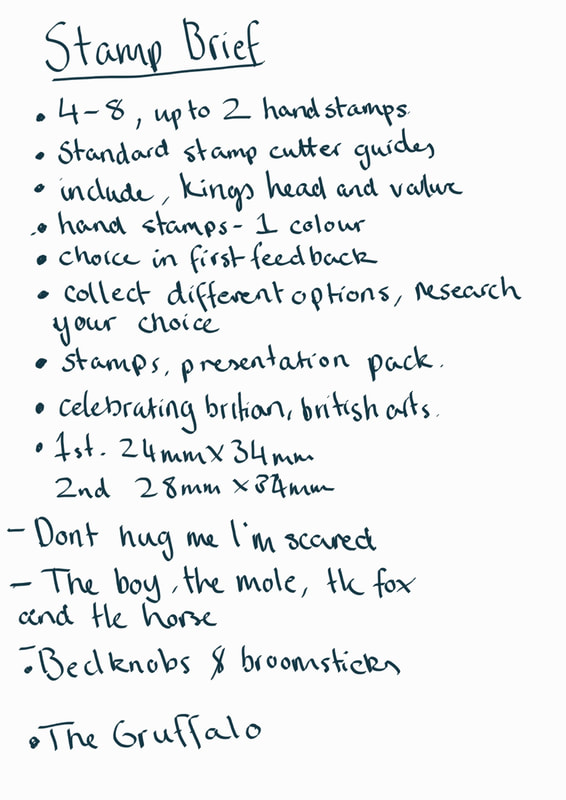 Stamp Brief
• 4-8, up to 2 handstamps.
• Standard stamp cutter guides
• include, kings head and value
• hand stamps - 1 colour
• choice in first feedback
• collect different options, research
your choice
• stamps, presentation pack.
• celebrating britian, british arts.
• 1st. 24mm x 34mm
2nd 28mm x 34mm
- Dont hug me I'm scared
- The boy, the mole, the fox
and the horse
- Bedknobs & broomsticks
• The Gruffalo